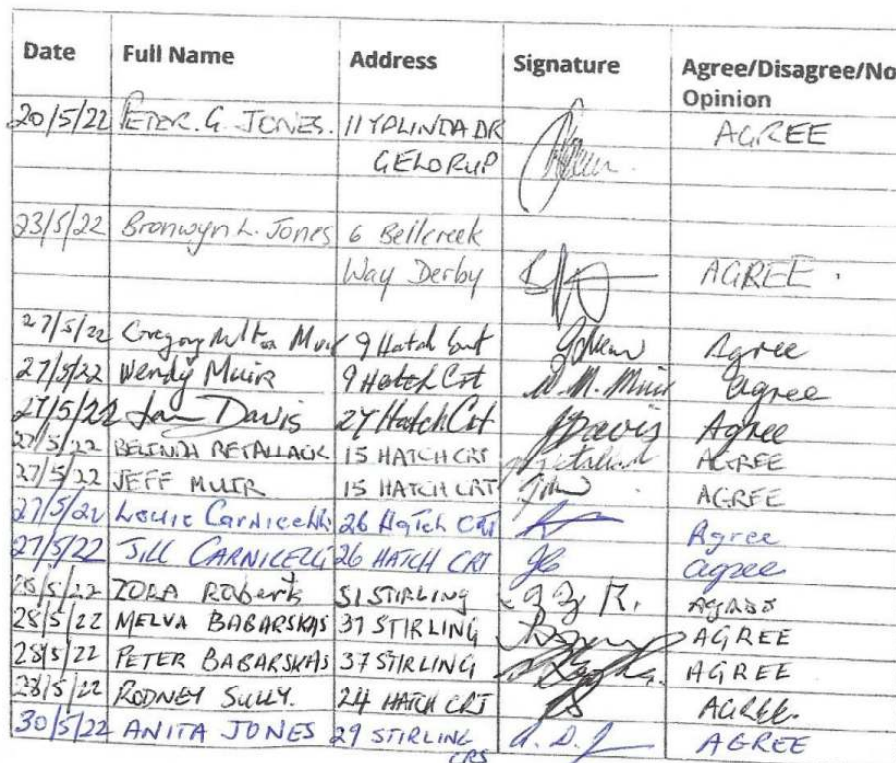 Date Full Name Address Signature Agree/Disagree/No
Opinion
20/5/22 PETER. G. JONES. 11 YALINDA DR AGREE
GELORUP
23/5/22 Bronwyn L. Jones 6 Bellcreek
Way Derby AGREE
27/5/22 Gregory Milton Muir 9 Hatch Agree
27/5/22 Wendy Muir 9 Hatch Crt W. M. Muir agree
27/5/22 Davis 24 Hatch Crt Davis Agree
27/5/22 BELINDA RETALLACK 15 HATCH CRT AGREE
27/5/22 JEFF MUIR 15 HATCH CRT AGREE
27/5/22 Louie Carnicelli 26 Hatch CRT Agree
27/5/22 JILL CARNICELLI 26 HATCH CRT JC agree
28/5/22 ZORA Roberts 51 STIRLING AGREE
28/5/22 MELVA BABARSKAS 37 STIRLING AGREE
28/5/22 PETER BABARSKAS 37 STIRLING AGREE
28/5/22 RODNEY SULLY. 24 HATCH CRT AGREE.
30/5/22 ANITA JONES 29 STIRLING AGREE
CRS